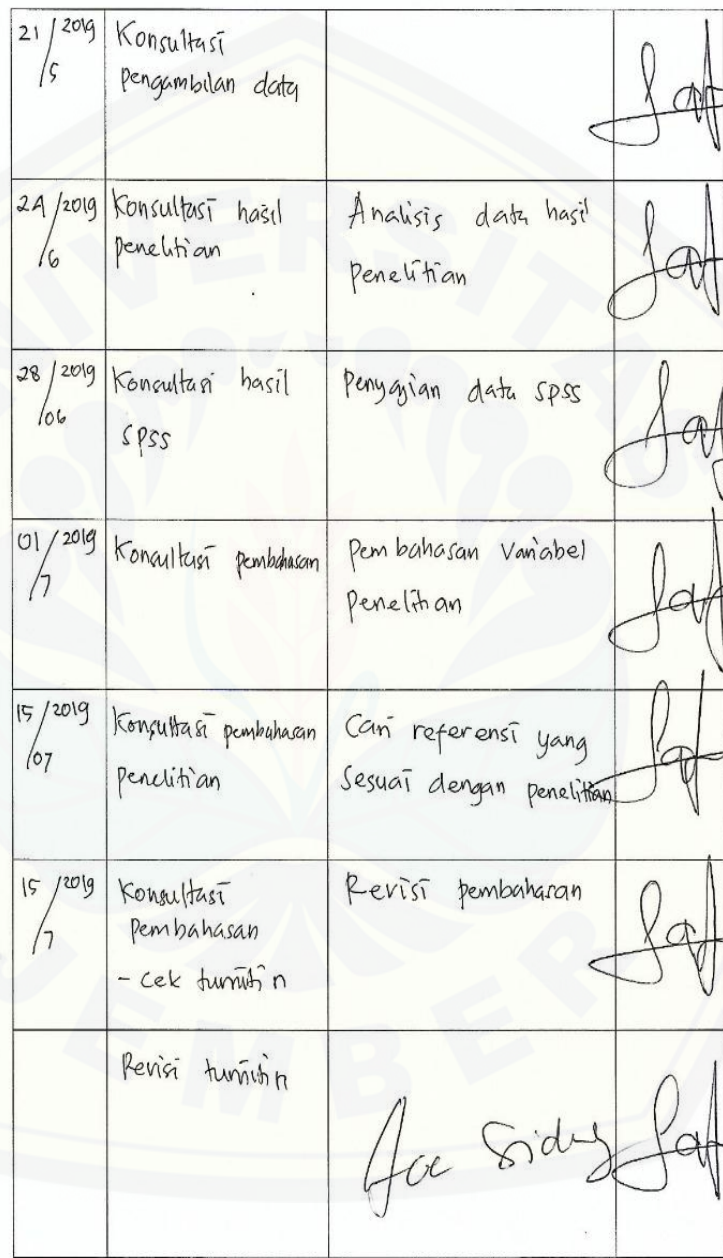 21/5 2019
Konsultasi
pengambilan data
24/6 2019
Konsultasi hasil
penelitian
Analisis data hasil
penelitian
28/06 2019
Konsultasi hasil
SPSS
Penyajian data SPSS
01/7 2019
Konsultasi pembahasan
Pembahasan Variabel
Penelitian
15/07 2019
Konsultasi pembahasan
penelitian
Cari referensi yang
sesuai dengan penelitian
15/7 2019
Konsultasi
Pembahasan
- cek turnitin
Revisi pembahasan
Revisi turnitin
Acc Sidang
UNIVERSITAS
JEMBER